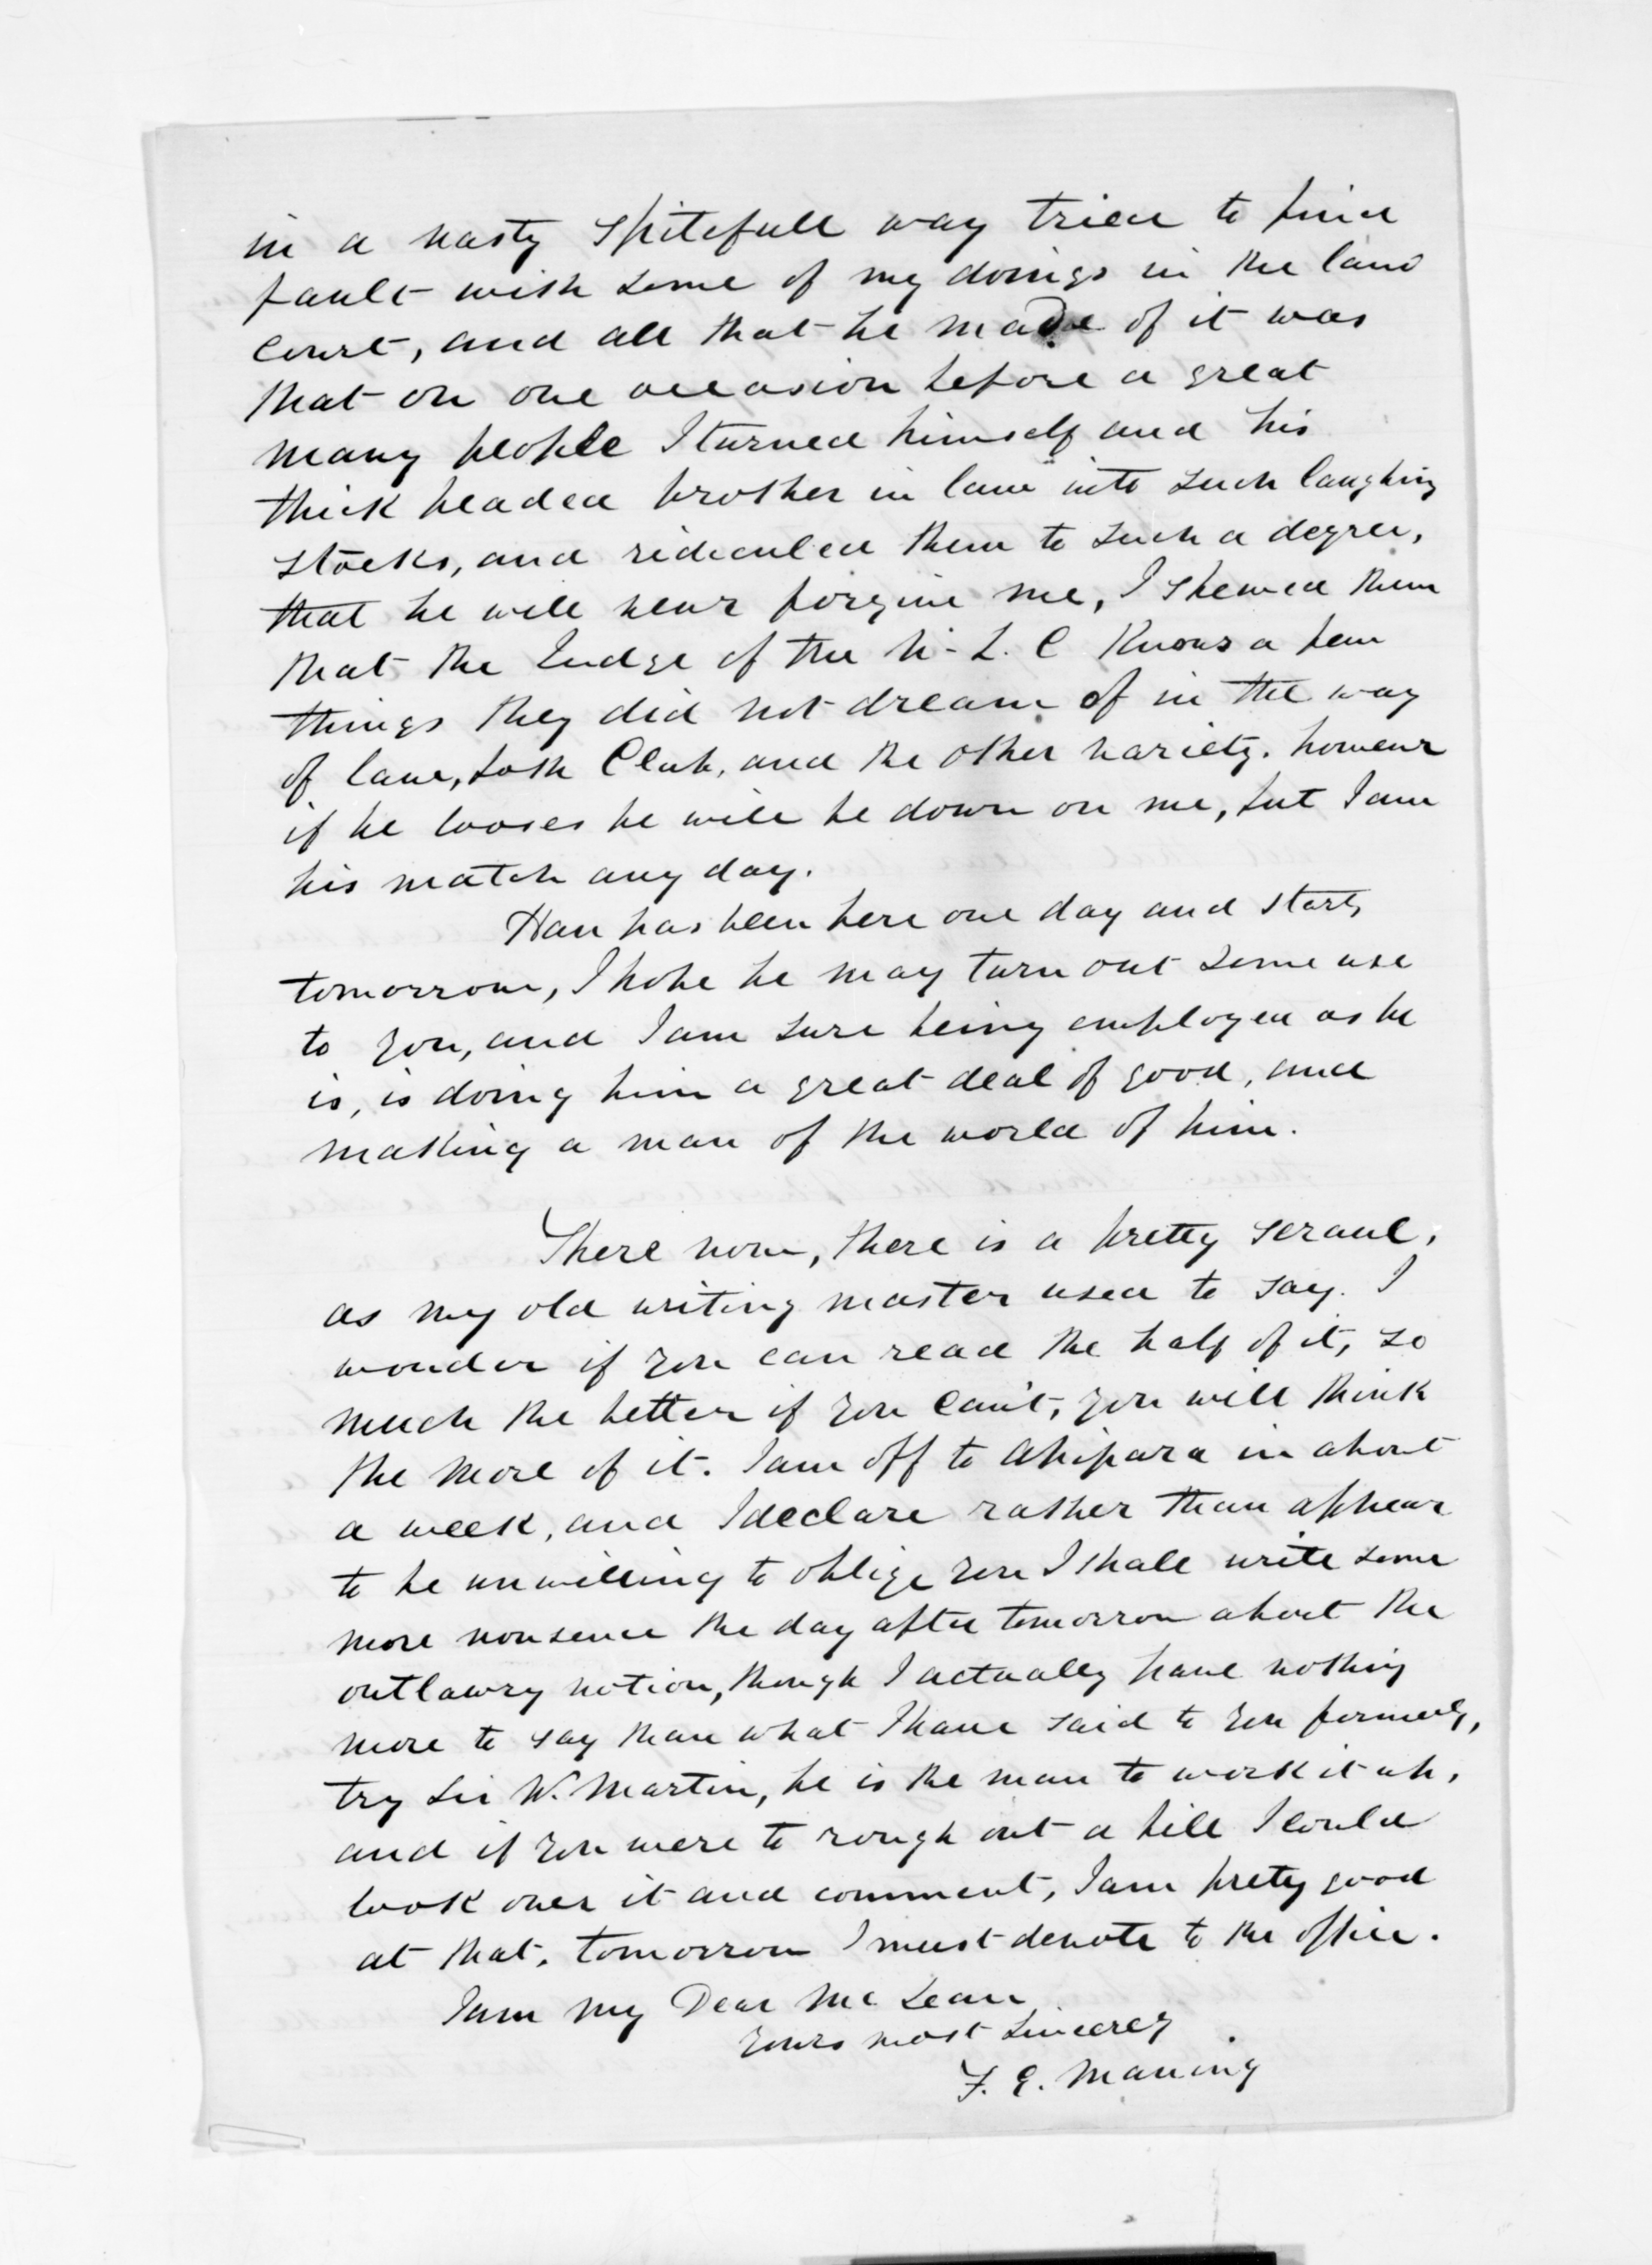 in a nasty spitefull way tried to find
fault with some of my doings in the land
court, and all that he made of it was
that on one occasion before a great
many people I turned himself and his
thick headed brother in law into such laughing
stocks, and ridiculed them to such a degree,
that he will never forgive me, I shewed them
that the Judge of the N. L. C Knows a few
things they did not dream of in the way
of law, both Club, and the other variety. however
if he looses he will be down on me, but I am
his match any day.
Hau has been here one day and starts
tomorrow, I hope he may turn out some use
to you, and I am sure being employed as he
is, is doing him a great deal of good, and
making a man of the world of him.
There now, there is a pretty scrawl,
as my old writing master used to say. I
wonder if you can read the half of it, so
much the better if you can't, you will think
the more of it. I am off to Ahipara in about
a week, and I declare rather than appear
to be unwilling to oblige you I shall write some
more nonsence the day after tomorrow about the
outlawry notion, though I actually have nothing
more to say than what I have said to you formerly,
try Sir W. Martin, he is the man to work it up,
and if you were to rough out a bill I could
look over it and comment, I am prety good
at that. tomorrow I must devote to the office.
I am my Dear Mc Lean
Yours most Sincerely
F. E. Maning